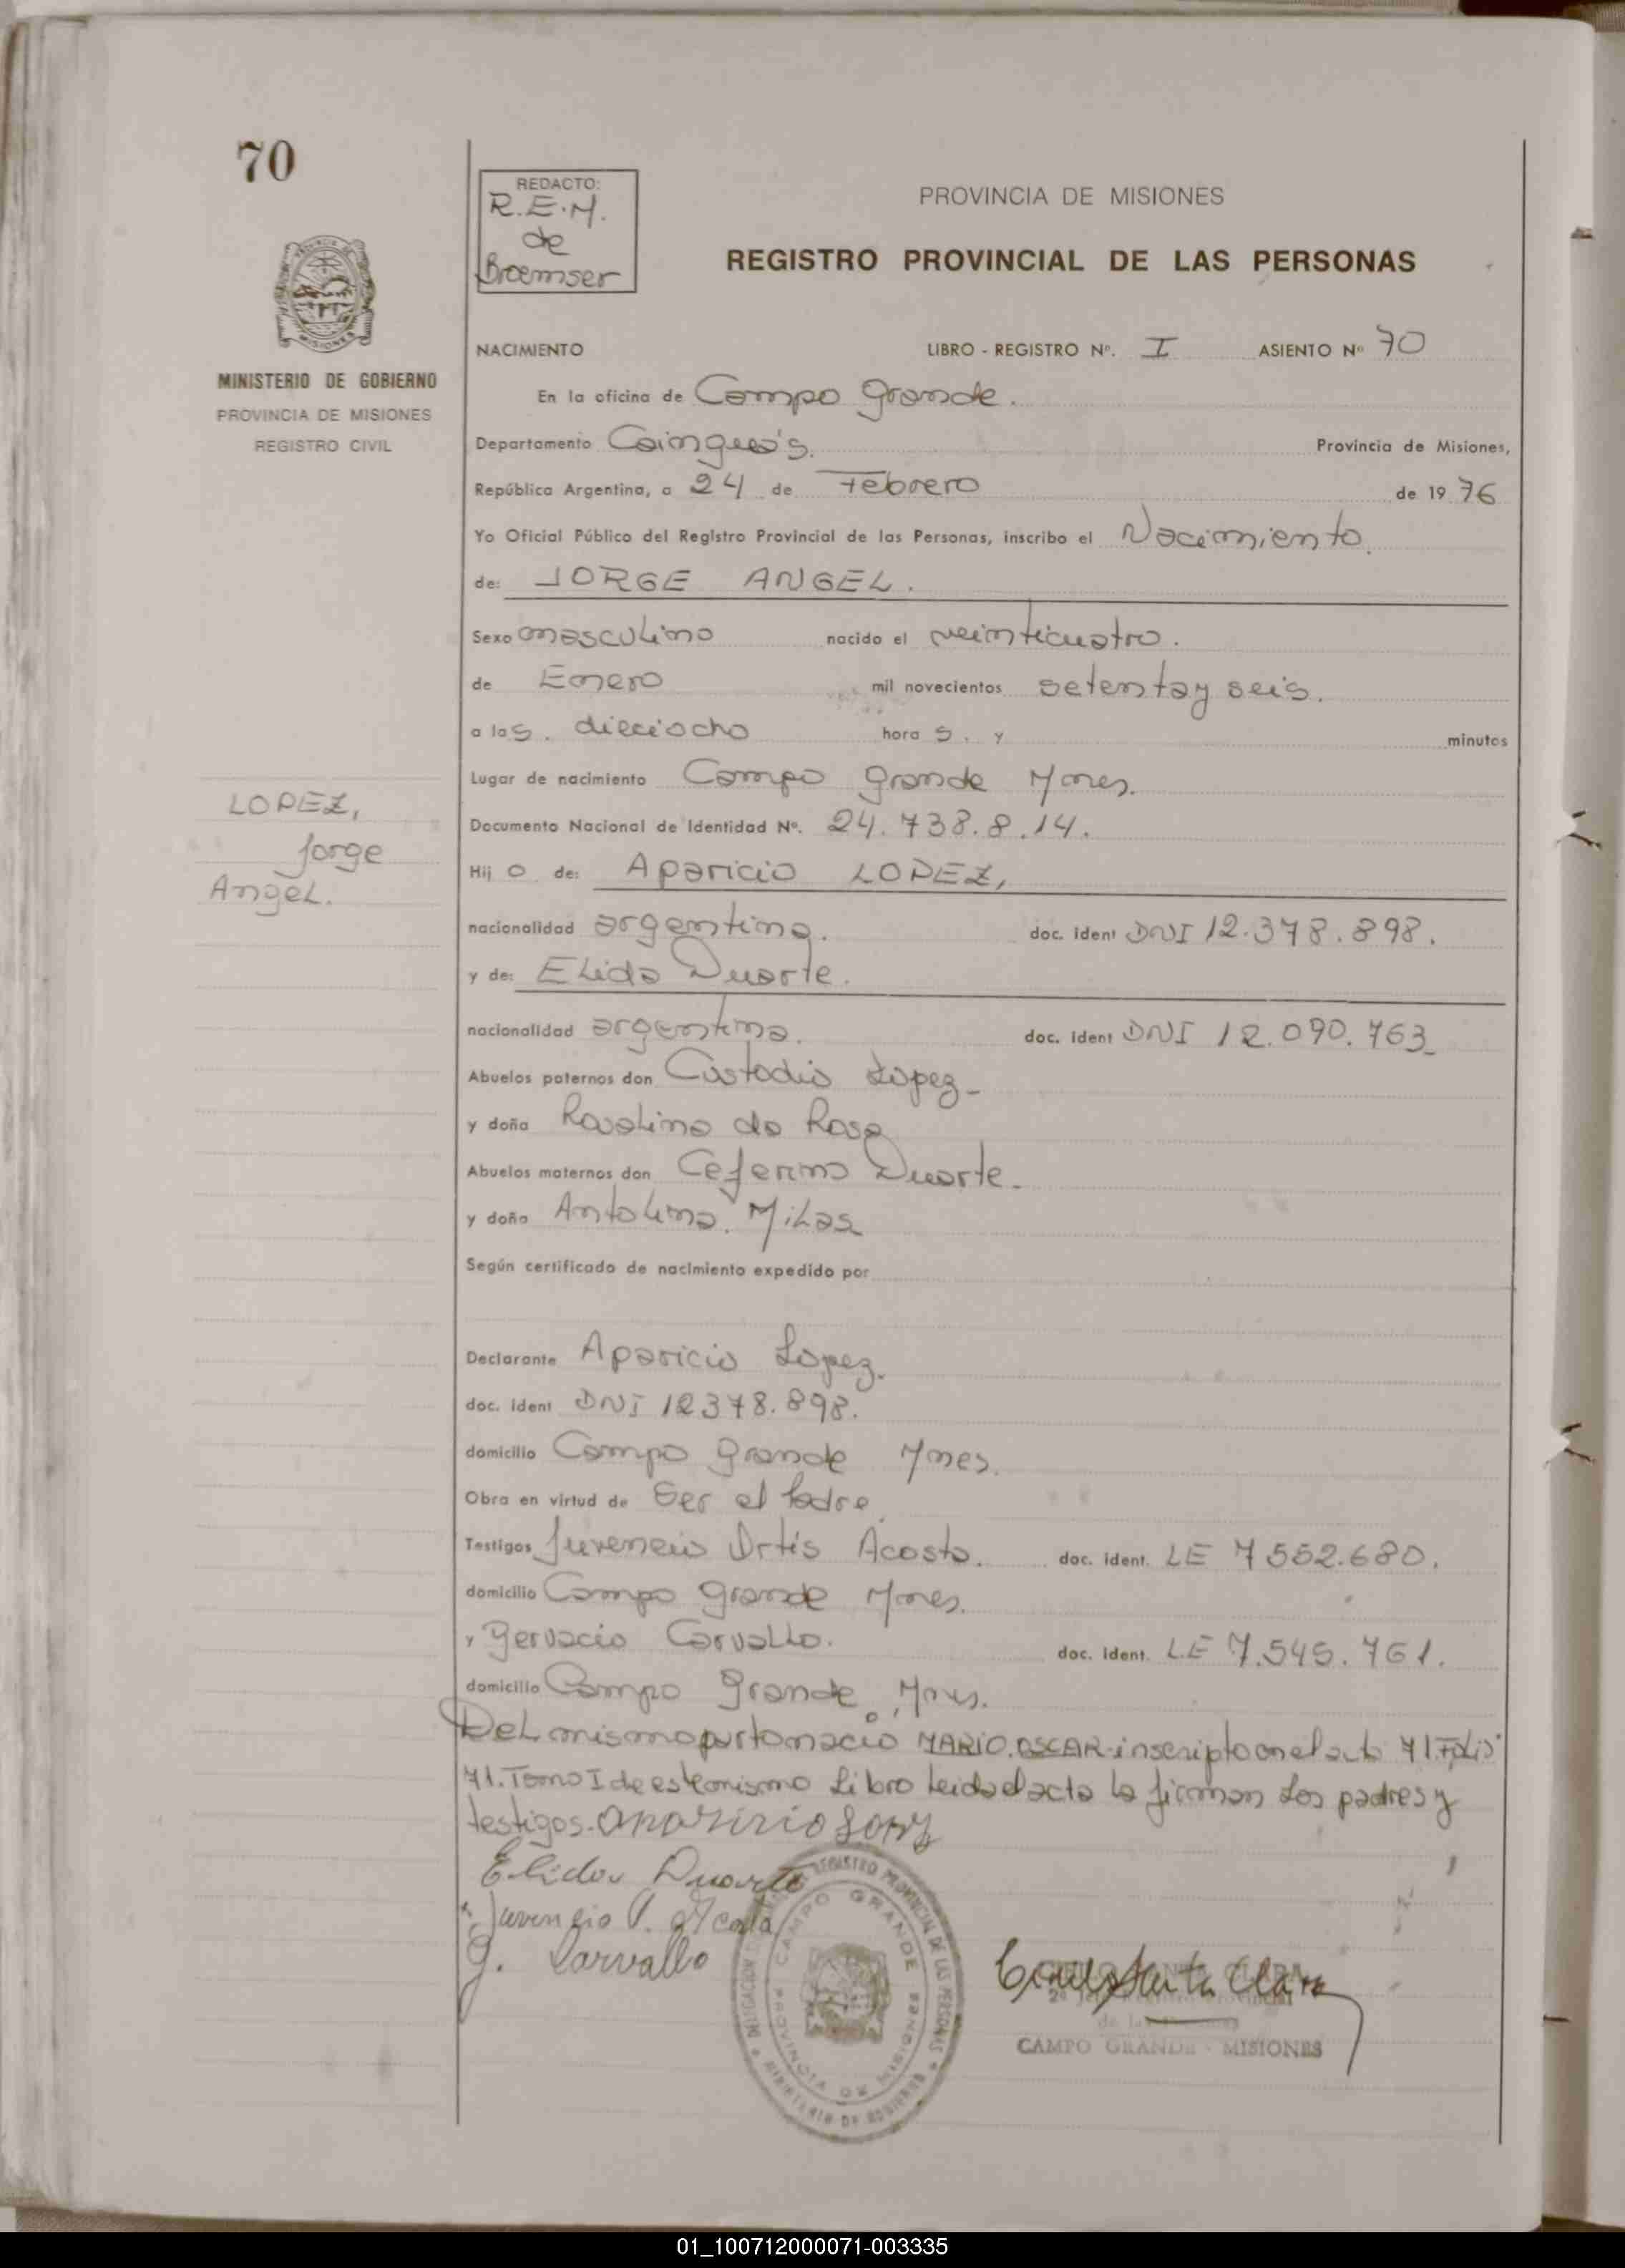 70
REDACTO:
R.E.M.
de
Broemser
PROVINCIA DE MISIONES
REGISTRO PROVINCIAL DE LAS PERSONAS
MISIONES
MINISTERIO DE GOBIERNO
PROVINCIA DE MISIONES
REGISTRO CIVIL
NACIMIENTO LIBRO - REGISTRO Nº. I ASIENTO Nº 70
En la oficina de Campo Grande.
Departamento Cainguás. Provincia de Misiones,
República Argentina, a 24 de Febrero de 1976
Yo Oficial Público del Registro Provincial de las Personas, inscribo el Nacimiento.
de: JORGE ANGEL.
Sexo masculino nacido el veinticuatro.
de Enero mil novecientos setenta y seis.
a las. dieciocho horas. y minutos
Lugar de nacimiento Campo Grande Mnes.
Documento Nacional de Identidad Nº. 24.738.8.14.
LOPEZ,
Jorge
Angel.
Hijo de: Aparicio LOPEZ,
nacionalidad argentina. doc. ident DNI 12.378.898.
y de: Elida Duarte.
nacionalidad argentina. doc. ident DNI 12.090.763_
Abuelos paternos don Custodio Lopez_
y doña Rosalina da Rosa
Abuelos maternos don Ceferino Duarte_
y doña Antolina Milas
Según certificado de nacimiento expedido por
Declarante Aparicio Lopez.
doc. ident DNI 12378.898.
domicilio Campo Grande Mnes.
Obra en virtud de Ser el Padre
Testigos Juvencio Ortis Acosta. doc. ident. LE 7552.680.
domicilio Campo Grande Mnes.
y Gervacio Carvallo. doc. ident. LE 7.545.761.
domicilio Campo Grande, Mnes.
Del mismo parto nació MARIO.OSCAR-inscripto en el acta 71.Folio
71.Tomo I de este mismo Libro Leida el acta la firman Los padres y
testigos. aparicio Lopez
Elida Duarte
Juvencio O. Acosta
G. Carvallo
DELEGACION REGISTRO PROVINCIAL DE LAS PERSONAS
CAMPO GRANDE
PROVINCIA DE MISIONES
MINISTERIO DE GOBIERNO
Santa Clara
CAMPO GRANDE - MISIONES
01_100712000071-003335